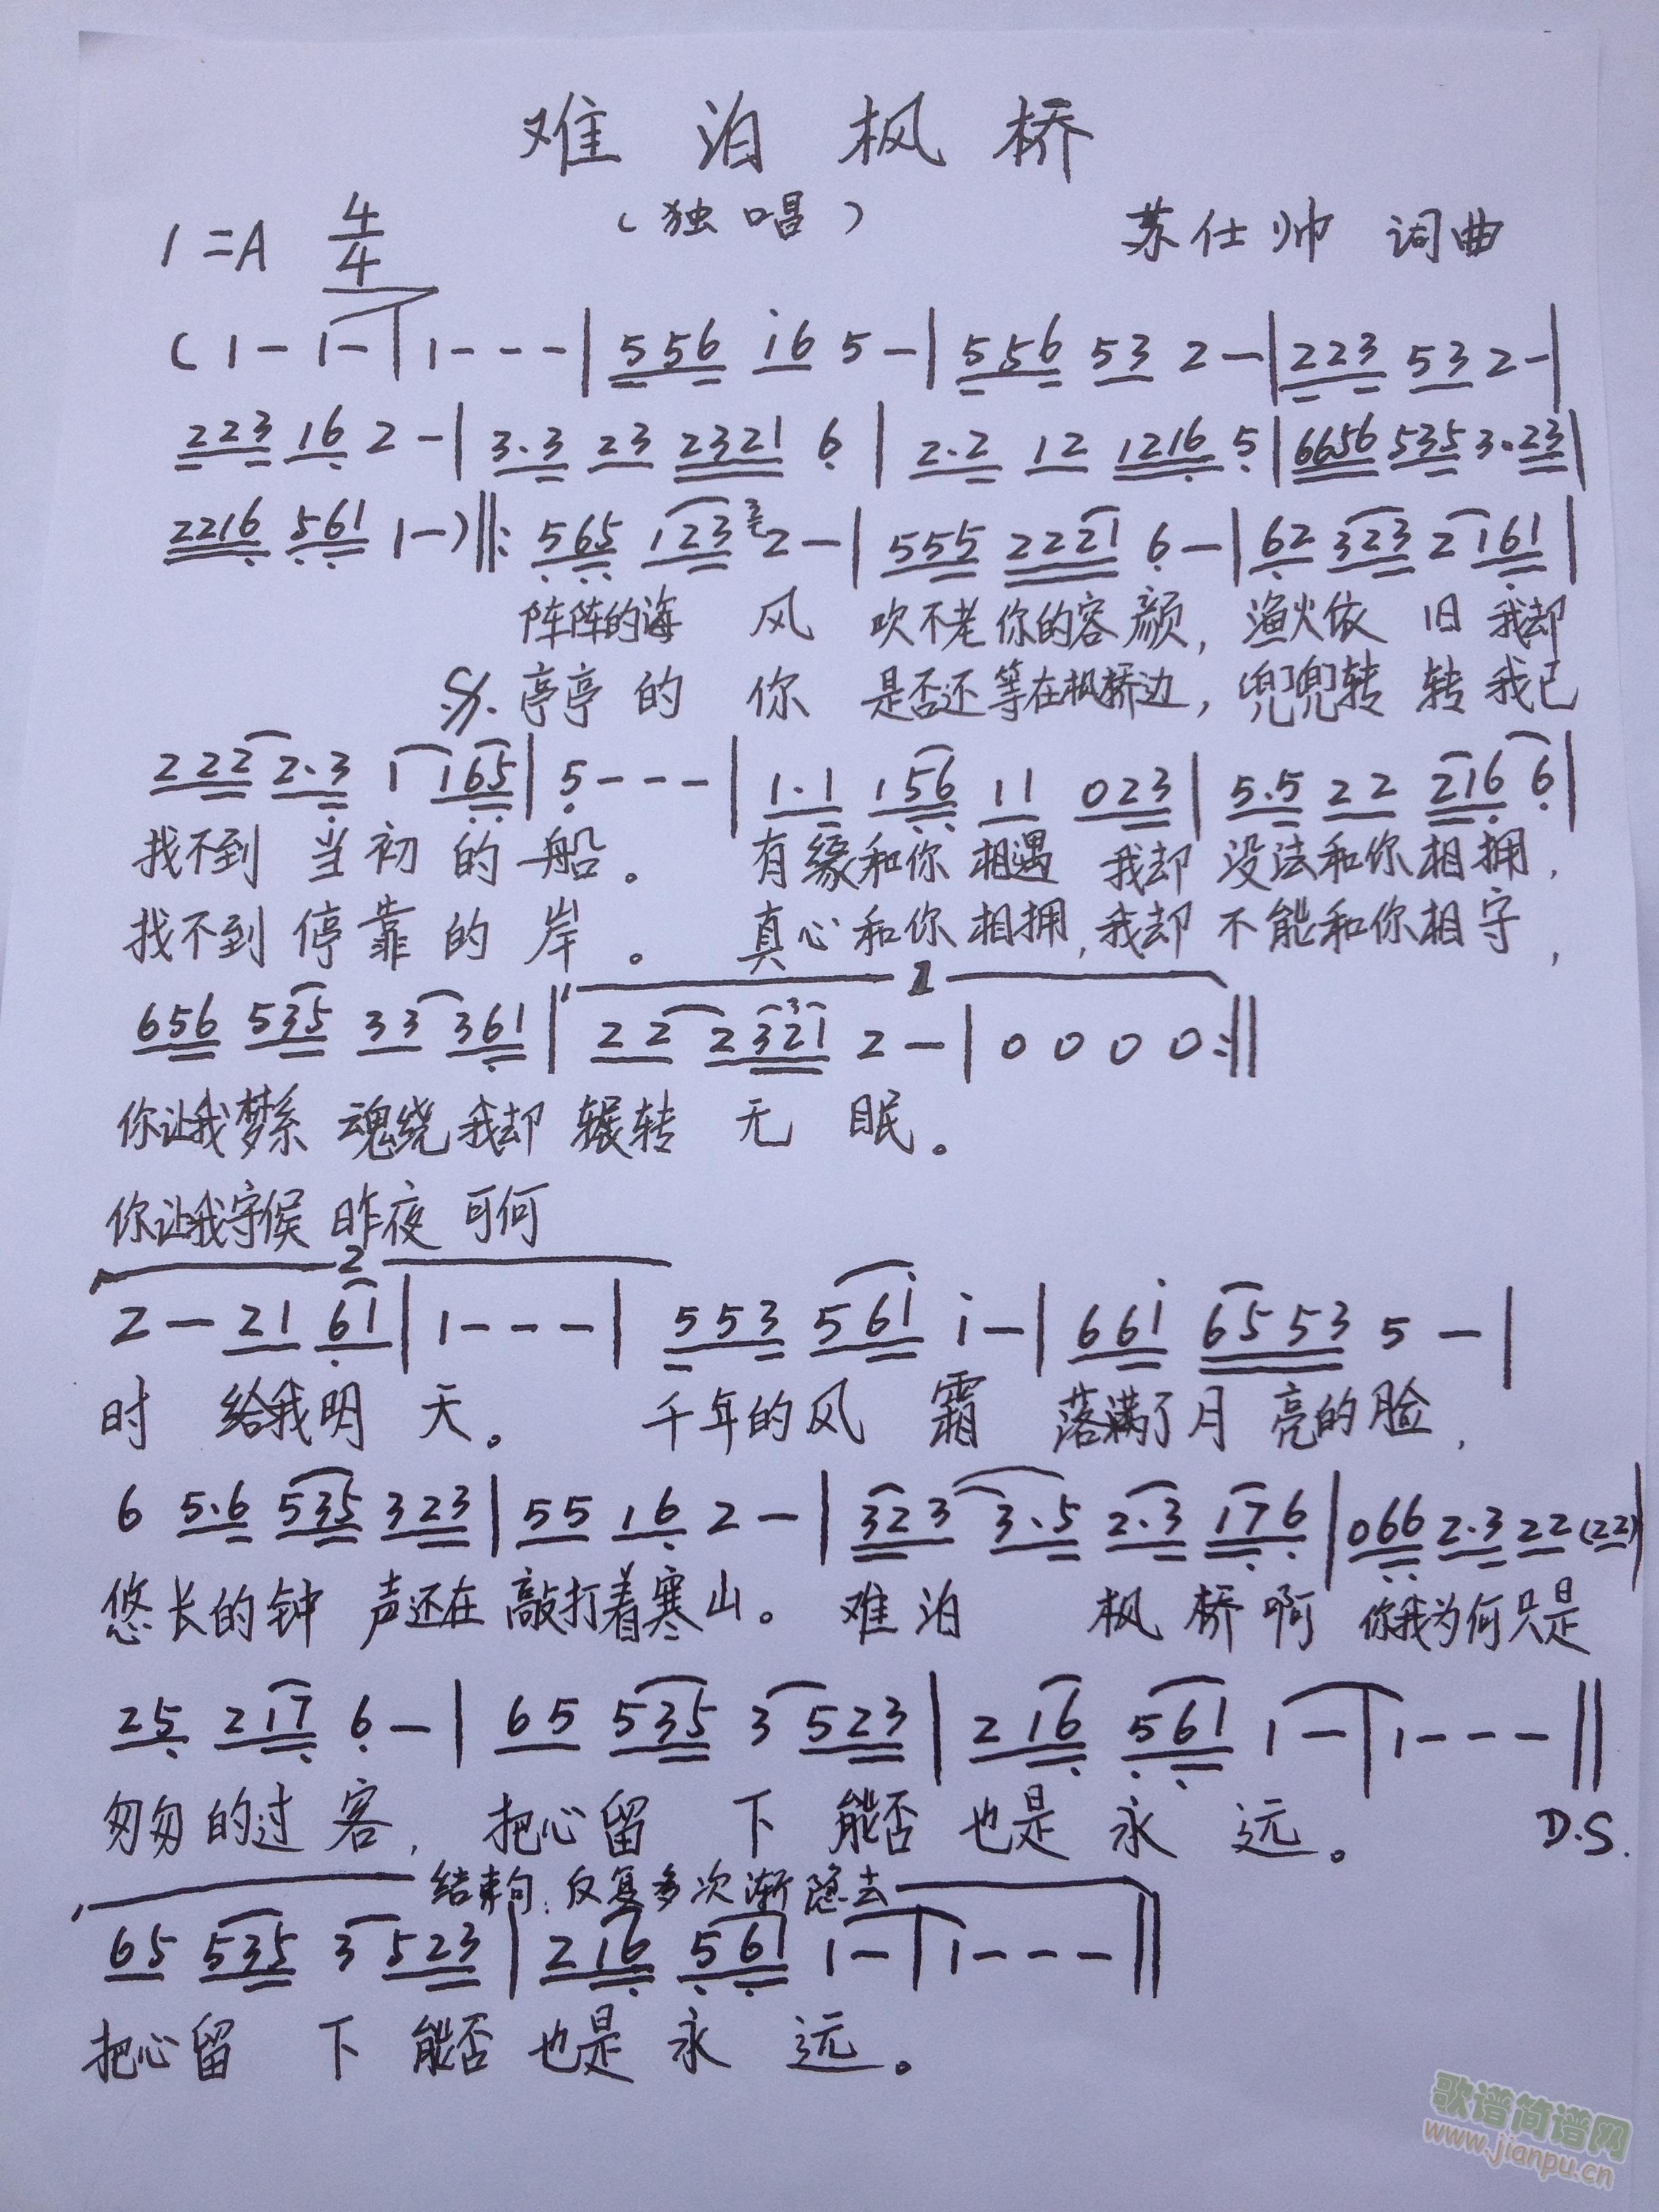 难泊枫桥
(独唱)
1=A 4/4 苏仕帅 词曲
(1- 1-|1---|556 i6 5-|556 53 2-|223 53 2-|
223 16 2-|3.3 23 2321 6|2.2 12 1216 5|6656 535 3.23|
2216 561 1-)‖: 565 123 2-|555 2221 6-|62 323 2161|
阵阵的海 风 吹不老你的容颜, 渔火依 旧 我却
亭亭的 你 是否还等在枫桥边, 兜兜转 转 我已
222 2.3 1 165|5---|1.1 156 11 023|5.5 22 216 6|
找不到 当初的船。 有缘和你相遇 我却 没法和你相拥,
找不到 停靠的岸。 真心和你相拥, 我却 不能和你相守,
1
656 535 33 361|22 2321 2-|0 0 0 0:‖
你让我梦系 魂绕我却 辗转 无 眠。
你让我守侯 昨夜 可何
2
2- 21 61|1---|553 561 i-|66i 6553 5-|
时 给我明 天。 千年的风 霜 落满了月亮的脸,
6 5.6 535 323|55 16 2-|323 3.5 2.3 176|066 2.3 22 (22)|
悠长的钟 声还在 敲打着寒山。 难泊 枫桥啊 你我为何只是
25 217 6-|65 535 3 523|216 561 1-|1---‖
匆匆的过客, 把心留 下 能否 也是 永 远。 D.S.
结束句: 反复多次渐隐去
65 535 3 523|216 561 1-|1---‖
把心留 下 能否 也是 永 远。
歌谱简谱网
www.jianpu.cn